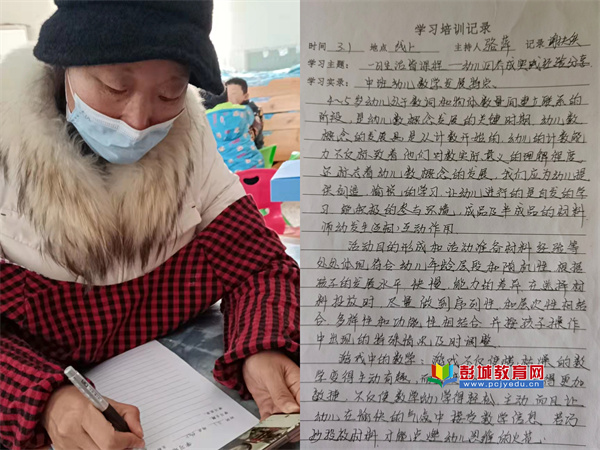 学习培训记录
时间 3.1 地点 线上 主持人 骆萍 记录
学习主题：一日生活皆课程——幼儿园养成
学习实录： 中班幼儿数学发展
4-5岁幼儿处于数词和物体数量间建立联系的
阶段，是幼儿数概念发展的关键时期，幼儿数
概念的发展是从计数开始的，幼儿的计数能
力不仅标致着他们对数实际意义的理解程度，
还标志着幼儿数概念的发展。我们应为幼儿提
供创造、愉悦的学习，让幼儿进行的是自发的学
习 的参与环境，成品及半成品的材料
师幼发生
互动作用。
活动目的形成和活动准备材料经验等
处处体现，符合幼儿年龄层段和随机性，根据
孩子的发展水平 快慢，能力的差异 在选择材
料投放时 尽量做到序列性和层次性相结
合，多样性和功能性相结合 并按孩子操作
中出现的特殊情况及时调整
游戏中的数学：游戏不仅使枯燥的数
学变得生动有趣，而 得更加
敏捷，不仅使数学幼学得轻松、主动 而且让
幼儿在愉快的气氛中接受数学信息，若巧
妙投放材料 才能点燃幼儿思维的火花。
彭城教育网
www.pcjyedu.cn
学习